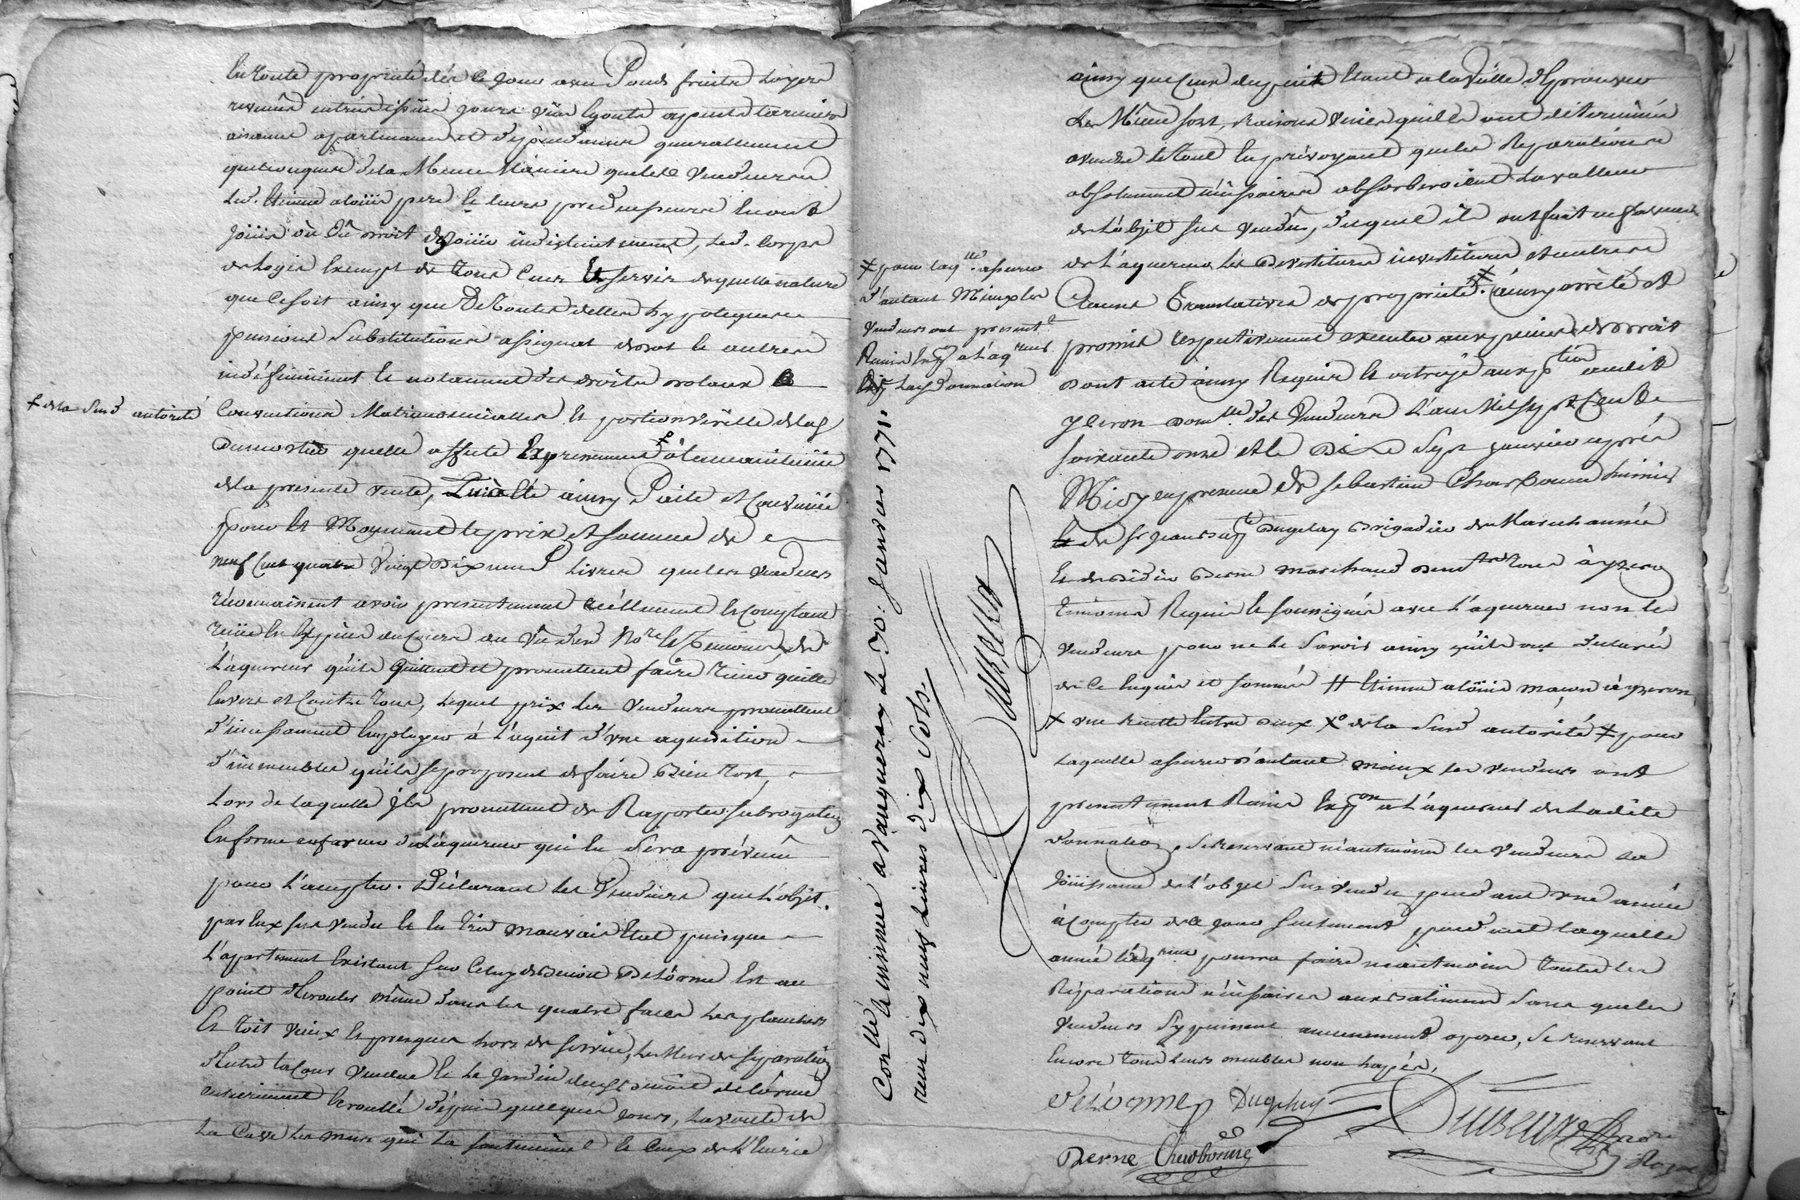 En toute propriété dès ce jour avec fonds fruits Loyers
revenus entrées issues jours vües egouts
aisance apartenance et dépendances generallement
quelconques de la Meme Maniere que les Vendeurs
Led. Etienne aloüis pere & leurs predecesseurs en ont
joüis où dû droit de joüir indistinctement, Led. Corps
de Logis Exempt de tous Cens & servis de quelle nature
que ce soit ainsy que De toutes dettes hypoteques
pensions Substitutions assignat
indéfiniment & notamment des droits dotaux &
+ de la susd autorité
Conventions Matrimonialles & portion virille
quelle affecte Expressement + à la maintenüe
de la presente vente, ainsy Faite et Convenüe
pour & Moyennant le prix et somme de
neuf Cent quatre Vingt Dix neuf Livres que les vendeurs
reconnaissent avoir presentement réellement & comptant
reçu en Espèces au Cours au Vû dud No.re & Temoins, de
L'aquereur qu'ils Quittent et promettent faire tenir quitte
Envers et Contre tous, Lequel prix Les Vendeurs promettent
d'incessament employer à L'aquit d'une aquisition
d'immeubles qu'ils se proposent de faire Bien tost,
Lors de laquelle ils promettent de Raporter subrogation
En forme en faveur de L'aquereur qui En Sera prévenu
pour L'accepter. Déclarant les Vendeurs que L'objet
par Eux sus vendu & En très mauvais Etat puisque
L'appartement Existant sur Celuy de Benoit Delorme Est au
point d'Ecrouler même dans les quatre faces Les planchers
& toit vieux & presque hors de service, Le Mur de separation
d'Entre la Cour Vendue & Le Jardin dud Benoit delorme
entierement Ecroullé depuis quelques Jours, La voute de
La Cave Les murs qui La soutiennent & Le Ceux de L'Ecurie
ainsy que Ceux du puit Etant a la Veille d'Eprouver
Le Même sort, Raisons Vives qui les ont déterminés
a vendre Le tout En prévoyant que les Réparations
absolument nécessaires absorberoient La valleur
de L'objet sus Vendu, duquel ils ont fait en faveur
de L'aquereur Les Devestitures investitures et autres
Clauses Translatives de propriété. ‡ ainsy arrêté et
promis respectivement executer aux peines de droit
Dont acte ainsy Requis & octroyé aux parties audit
yzeron Dom.lle des Vendeurs L'an Mil sept Cent
soixante onze et le Dix Sept janvier après
Midy en presence De Sebastien Charbonne
& de Sr jean Duplay Brigadier de Marechaussée
Berne Marchand tous à yzeron
Temoins Requis & soussignés avec L'aquereur non les
Vendeurs pour ne le savoir ainsy qu'ils ont Declarés
de Ce Enquis et sommés // Etienne aloüis maçon à yzeron
+ une renvoi entre deux X.° de la Susd autorité ‡ pour
Laquelle assurer d'autant mieux les Vendeurs ont
presentement Remis Exp.on a L'aquereur de Ladite
Donnation, Se reservant néantmoins les Vendeurs La
joüissance de L'objet Sus vendu pendant une année
à Compter de Ce jour seulement pendant laquelle
année L'aq.reur pourra faire néantmoins toutes les
Réparations nécessaires aux Batiment Sans que les
Vendeurs S'y puissent aucunement oposer, Se reservant
Encore tous leurs meubles non hapés,
‡ pour laq.lle assurer
d'autant Mieux les
Vendeurs ont present.t
Remis Exp.on a L'aq.reur
de Lad Donnation
Con.llé & insinué a Vaugneray Le 30: Janvier 1771
reçu dix neuf Livres dix sols.
Dusseux
Delorme Duplay
Dusseux
Berne Charbonne